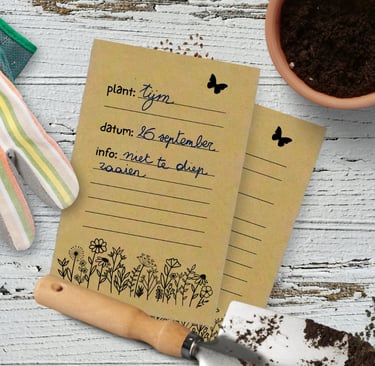 plant: tijm
datum: 26 september
info: niet te diep
zaaien